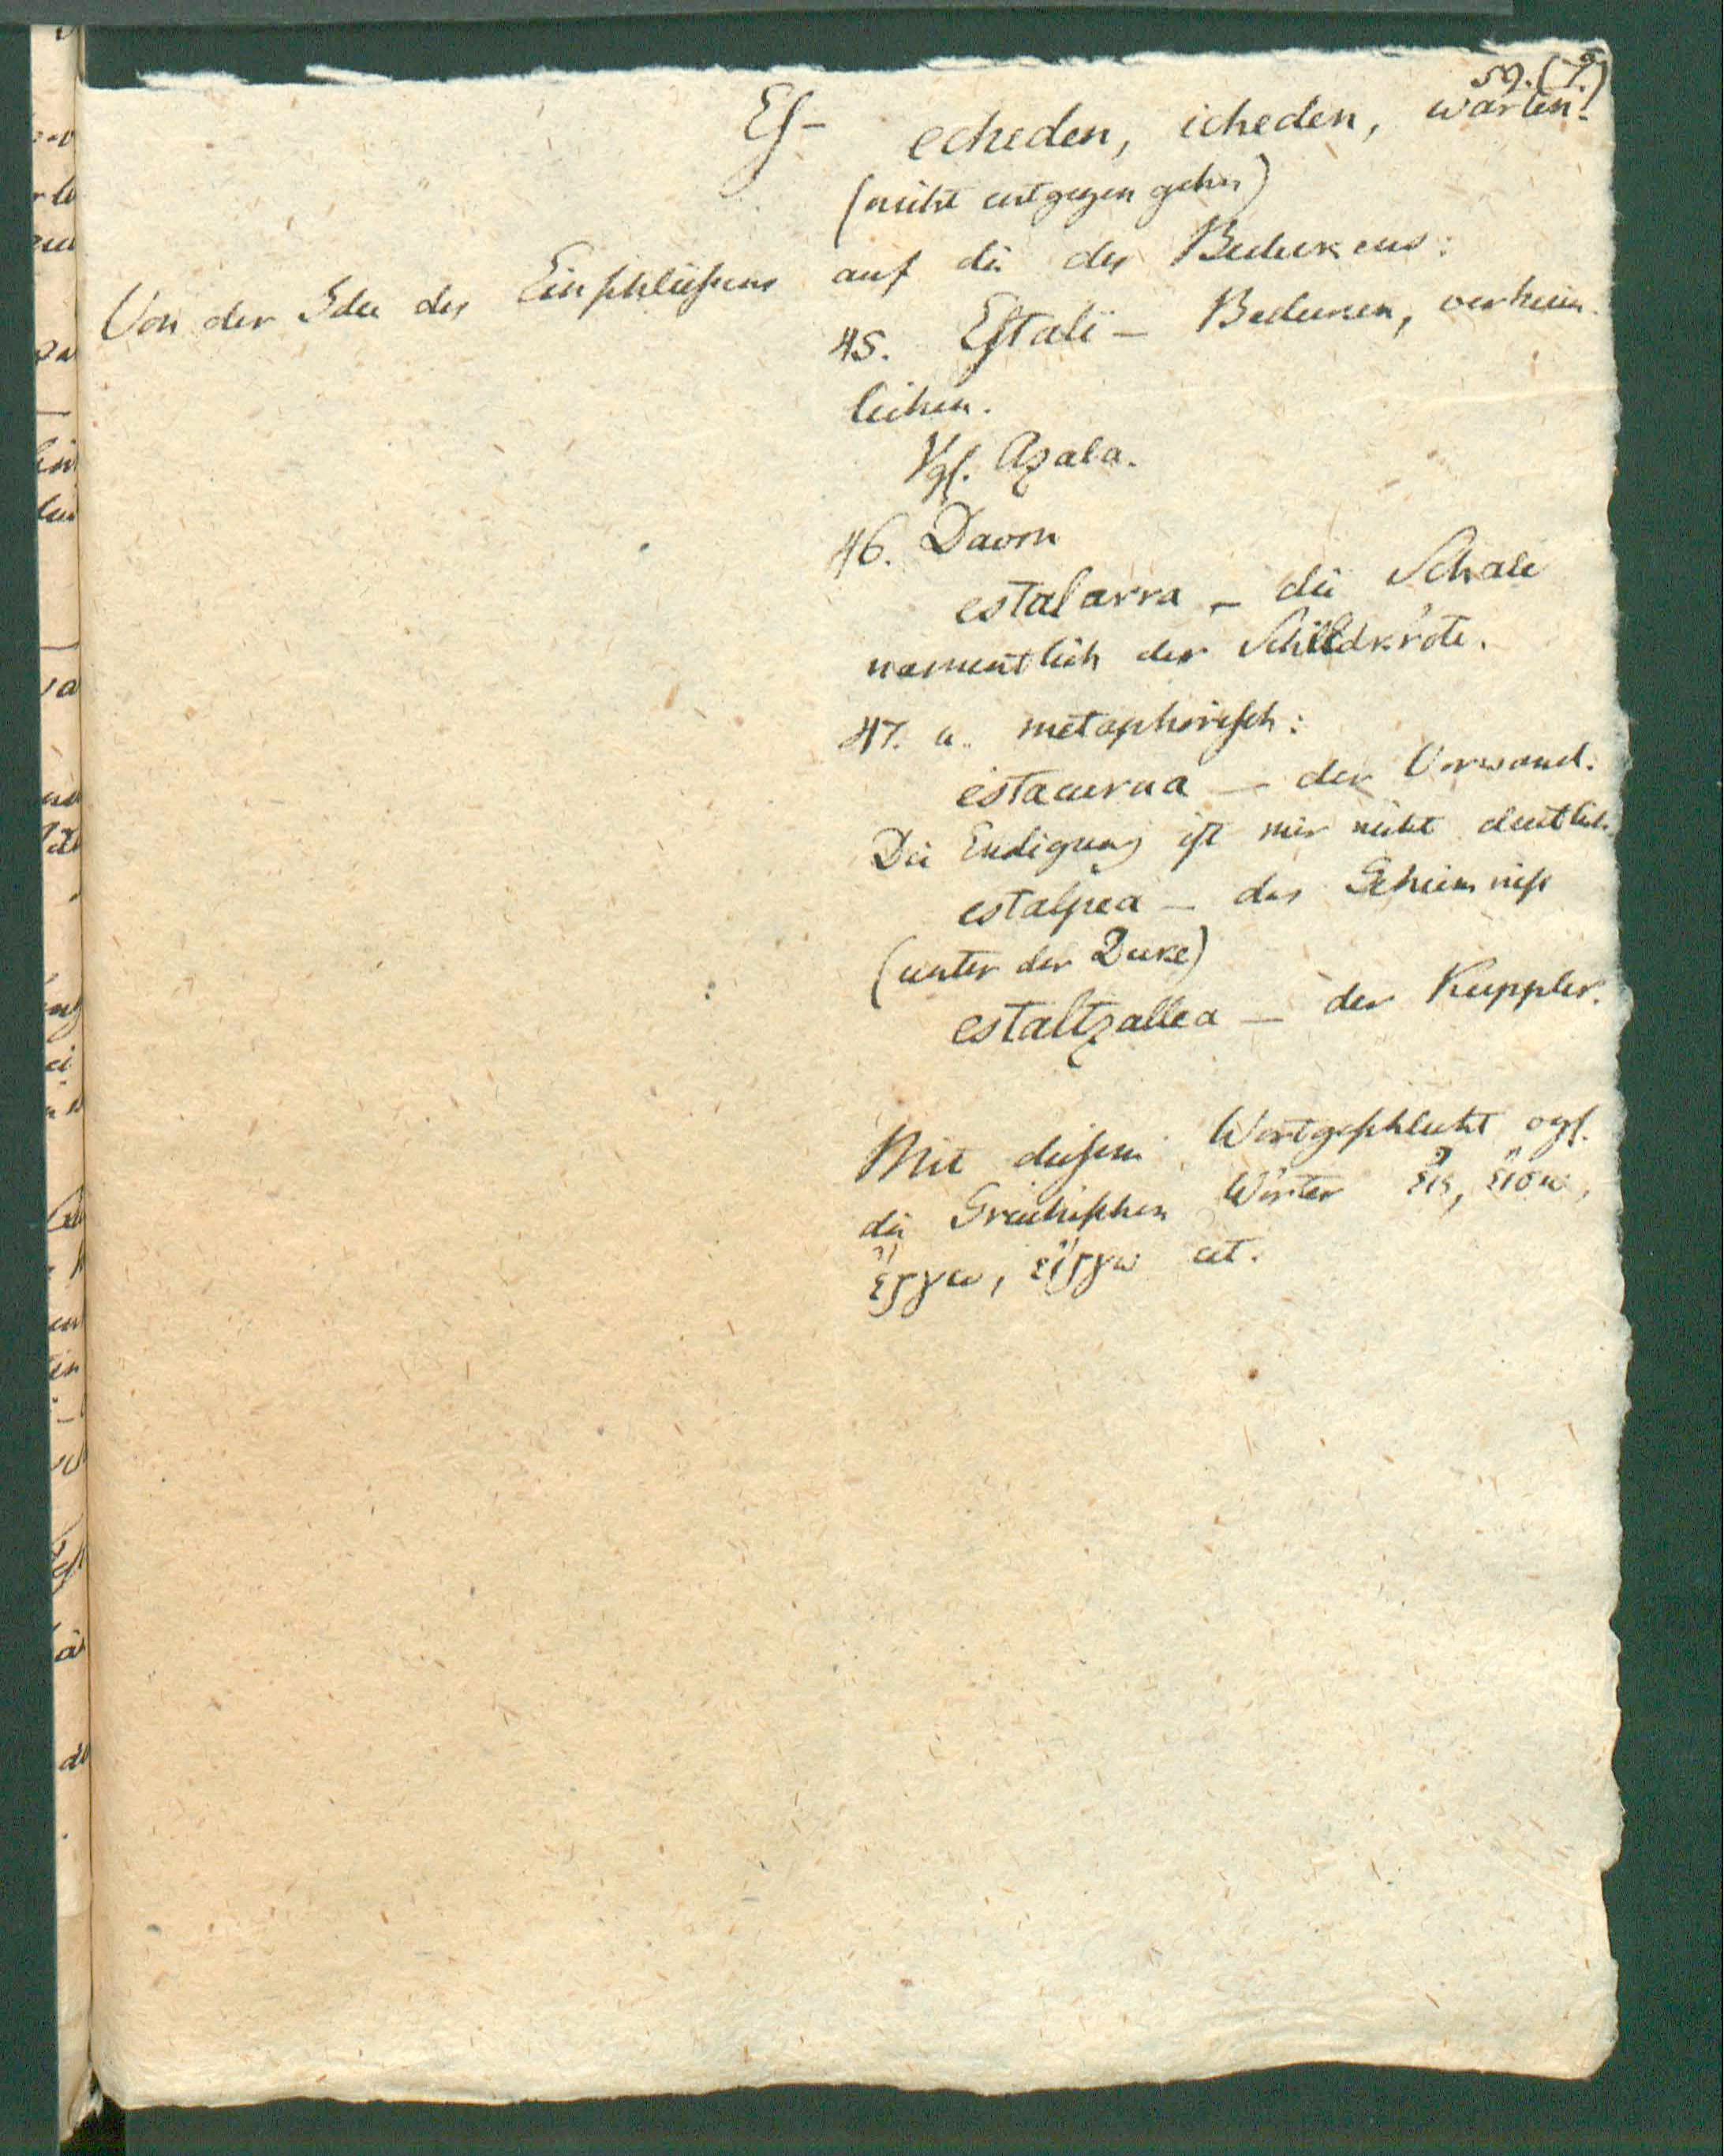 59. (7.)
Eſ- echeden, icheden, warten.
(nicht entgegen gehn)
Von der Idee des Einſchlieſsens auf die des Bedeckens:
45. Eſtali – Bedecken, verheim-
lichen.
Vgl. Azala.
46. Davon
estalarra – die Schale
namentlich der Schildkröte.
47. u. metaphoriſch:
estacurua – der Vorwand.
Die Endigung iſt mir nicht deutlich.
estalpea – das Geheimniſs
(unter der Decke)
estaltzallea – der Kuppler.
Mit dieſem Wortgeſchlecht vgl.
die Griechiſchen Wörter εἰς, εἴσω,
ἔργω, εἴργω cet.